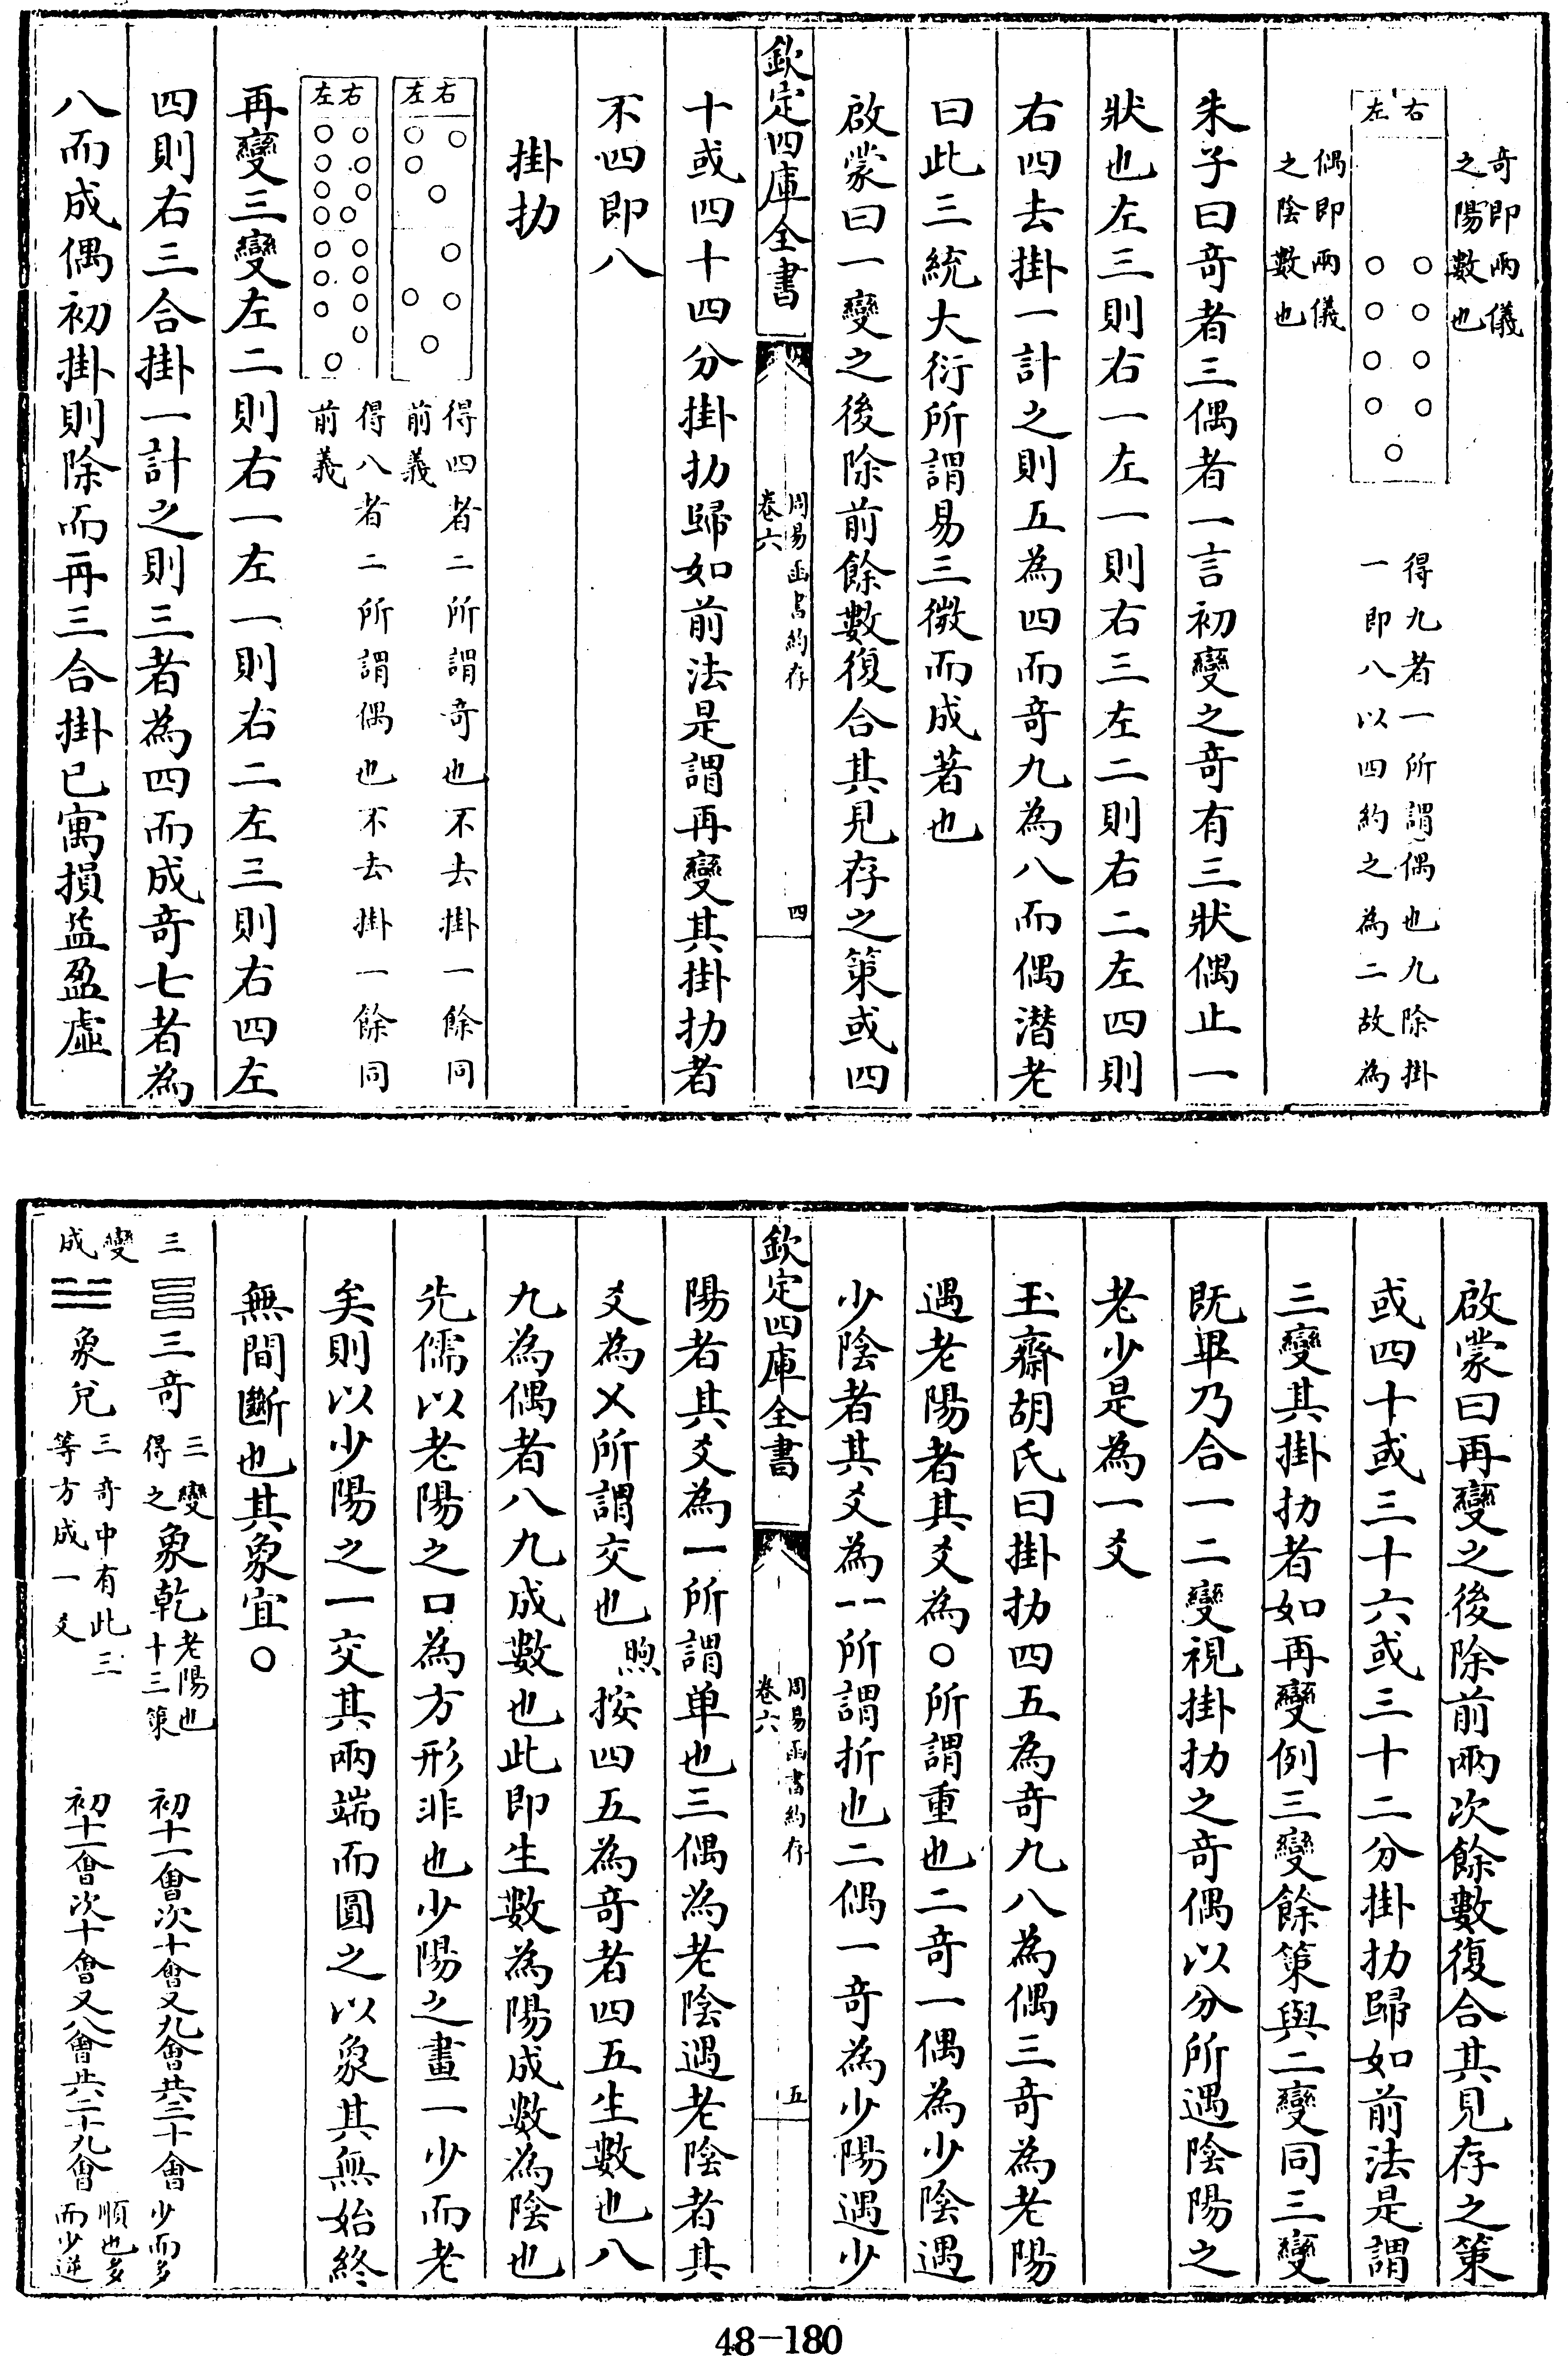 奇即兩儀
之陽數也
右左
得九者一所謂偶也九除掛
一即八以四約之為二故為
偶即兩儀
之陰數也
朱子曰奇者三偶者一言初變之奇有三狀偶止一
狀也左三則右一左一則右三左二則右二左四則
右四去掛一計之則五為四而奇九為八而偶潛老
曰此三統大衍所謂易三微而成著也
啟蒙曰一變之後除前餘數復合其見存之策或四
欽定四庫全書
周易函書約存
卷六
四
十或四十四分掛扐歸如前法是謂再變其掛扐者
不四即八
掛扐
右左
得四者二所謂奇也不去掛一餘同
前義
右左
得八者二所謂偶也不去掛一餘同
前義
再變三變左二則右一左一則右二左三則右四左
四則右三合掛一計之則三者為四而成奇七者為
八而成偶初掛則除而再三合掛已寓損益盈虛
啟蒙曰再變之後除前兩次餘數復合其見存之策
或四十或三十六或三十二分掛扐歸如前法是謂
三變其掛扐者如再變例三變餘策與二變同三變
既畢乃合一二變視掛扐之奇偶以分所遇陰陽之
老少是為一爻
玉齋胡氏曰掛扐四五為奇九八為偶三奇為老陽
遇老陽者其爻為○所謂重也二奇一偶為少陰遇
少陰者其爻為--所謂折也二偶一奇為少陽遇少
欽定四庫全書
周易函書約存
卷六
五
陽者其爻為一所謂单也三偶為老陰遇老陰者其
爻為乂所謂交也煦按四五為奇者四五生數也八
九為偶者八九成數也此即生數為陽成數為陰也
先儒以老陽之口為方形非也少陽之畫一少而老
矣則以少陽之一交其兩端而圓之以象其無始終
無間斷也其象宜○
三變成
三奇三變得之象乾老陽也十三策 初十一會次十會又九會共三十會少而多
☱象兌三奇中有此三等方成一爻 初十一會次十會又八會共二十九會順也多而少逆